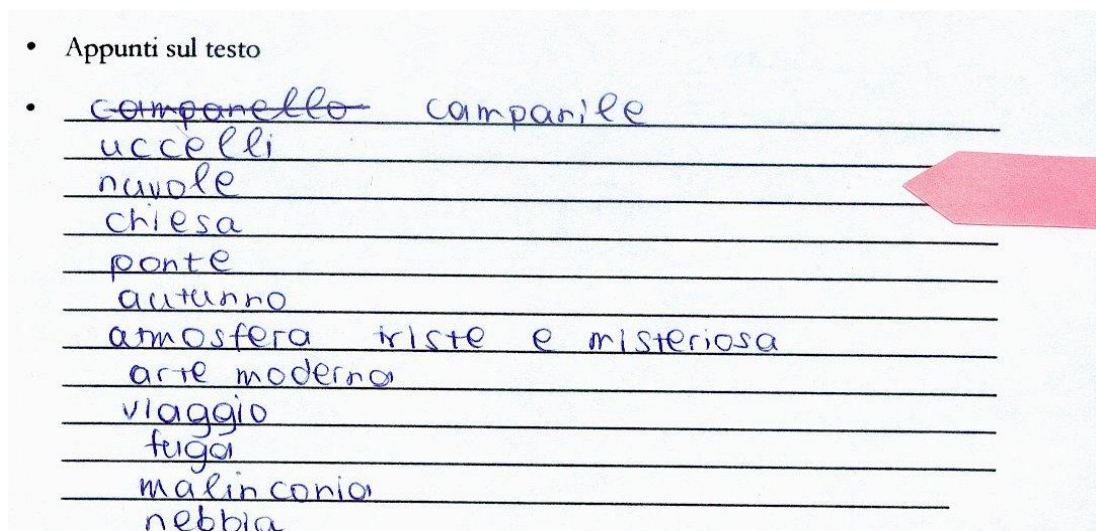 • Appunti sul testo
• campanello campanile
uccelli
nuvole
chiesa
ponte
autunno
atmosfera triste e misteriosa
arte moderna
viaggio
fuga
malinconia
nebbia